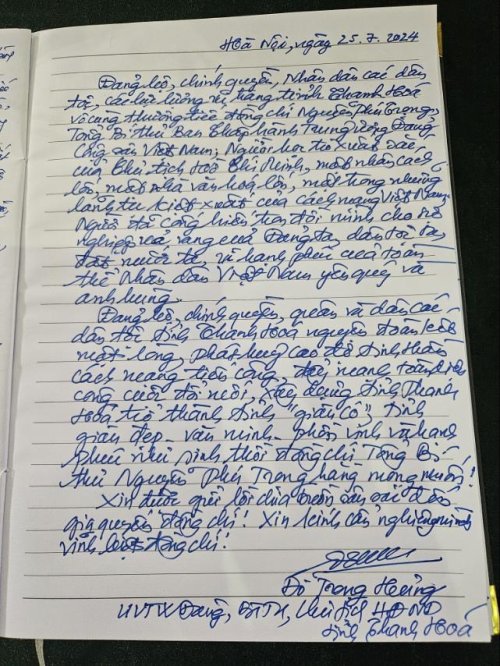 Hà Nội, ngày 25.7.2024
Đảng bộ, chính quyền, Nhân dân các dân
tộc, các lực lượng vũ trang tỉnh Thanh Hoá
vô cùng thương tiếc đồng chí Nguyễn Phú Trọng,
Tổng Bí thư Ban Chấp hành Trung ương Đảng
Cộng sản Việt Nam; Người học trò xuất sắc
của Chủ tịch Hồ Chí Minh, một nhân cách
lớn, một nhà văn hoá lớn, một trong những
lãnh tụ kiệt xuất của cách mạng Việt Nam.
Người đã cống hiến trọn đời mình cho sự
nghiệp vẻ vang của Đảng ta, dân tộc ta,
đất nước ta và hạnh phúc của toàn
thể Nhân dân Việt Nam yêu quý và
anh hùng.
Đảng bộ, chính quyền, quân và dân các
dân tộc tỉnh Thanh Hoá nguyện đoàn kết
một lòng, phát huy cao độ tinh thần
cách mạng tiến công, thành
công cuộc đổi mới, xây dựng tỉnh Thanh
Hoá trở thành tỉnh "giàu có", tỉnh
giàu đẹp - văn minh - phồn vinh và hạnh
phúc như sinh thời đồng chí Tổng Bí
thư Nguyễn Phú Trọng hằng mong muốn!
Xin được gửi lời chia buồn sâu sắc đến
gia quyến đồng chí! Xin kính cẩn nghiêng mình
vĩnh biệt đồng chí!
Đỗ Trọng Hưng
UVTW Đảng, BTTU, Chủ tịch HĐND
tỉnh Thanh Hoá